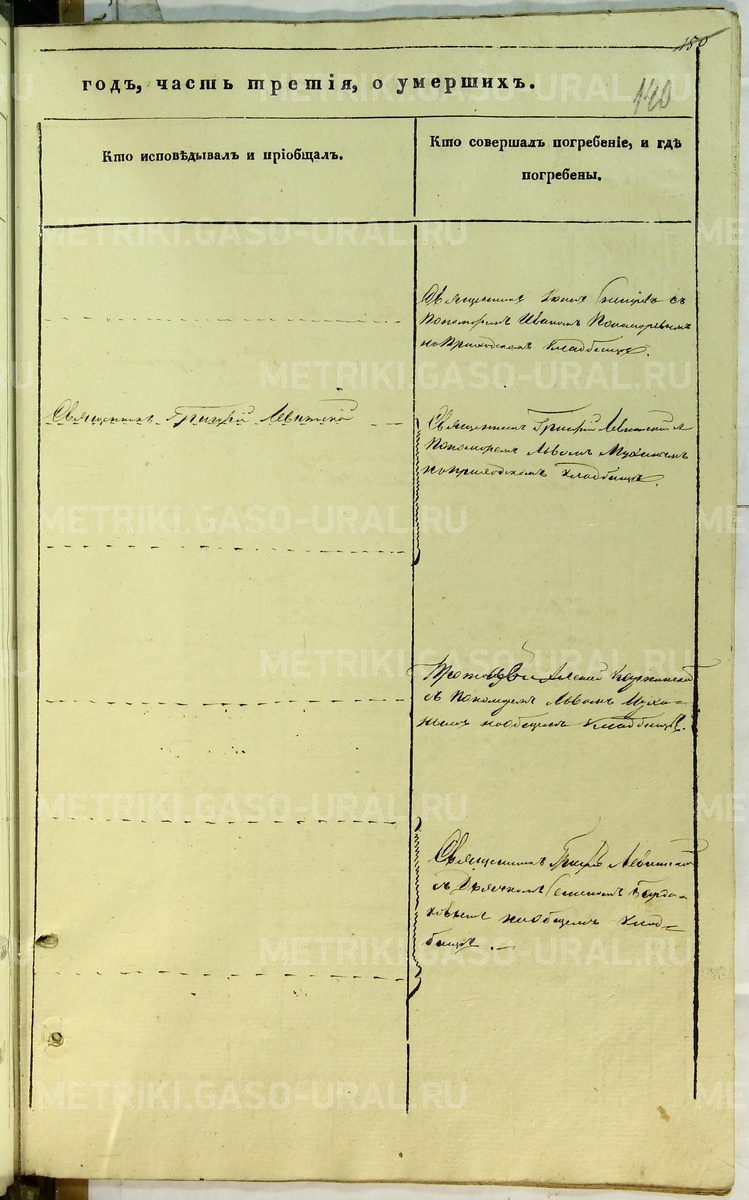 150
140
годъ, часть третія, о умершихъ.
Кто исповѣдывалъ и пріобщалъ.
Кто совершалъ погребеніе, и гдѣ
погребены.
Священникъ съ
Пономоремъ Иваномъ Пономоревымъ
на приходскомъ кладбищѣ.
Священникъ Григорій Левитской
Священникъ Григорій Левитской съ
Пономоремъ Львомъ Мухинымъ
на приходскомъ кладбищѣ.
Протоіерей Алексій
съ Пономоремъ Львомъ Мухи-
нымъ на общемъ кладбищѣ.
Священникъ Григорій Левитской
съ Дьячкомъ
на общемъ клад-
бищѣ.
METRIKI.GASO-URAL.RU